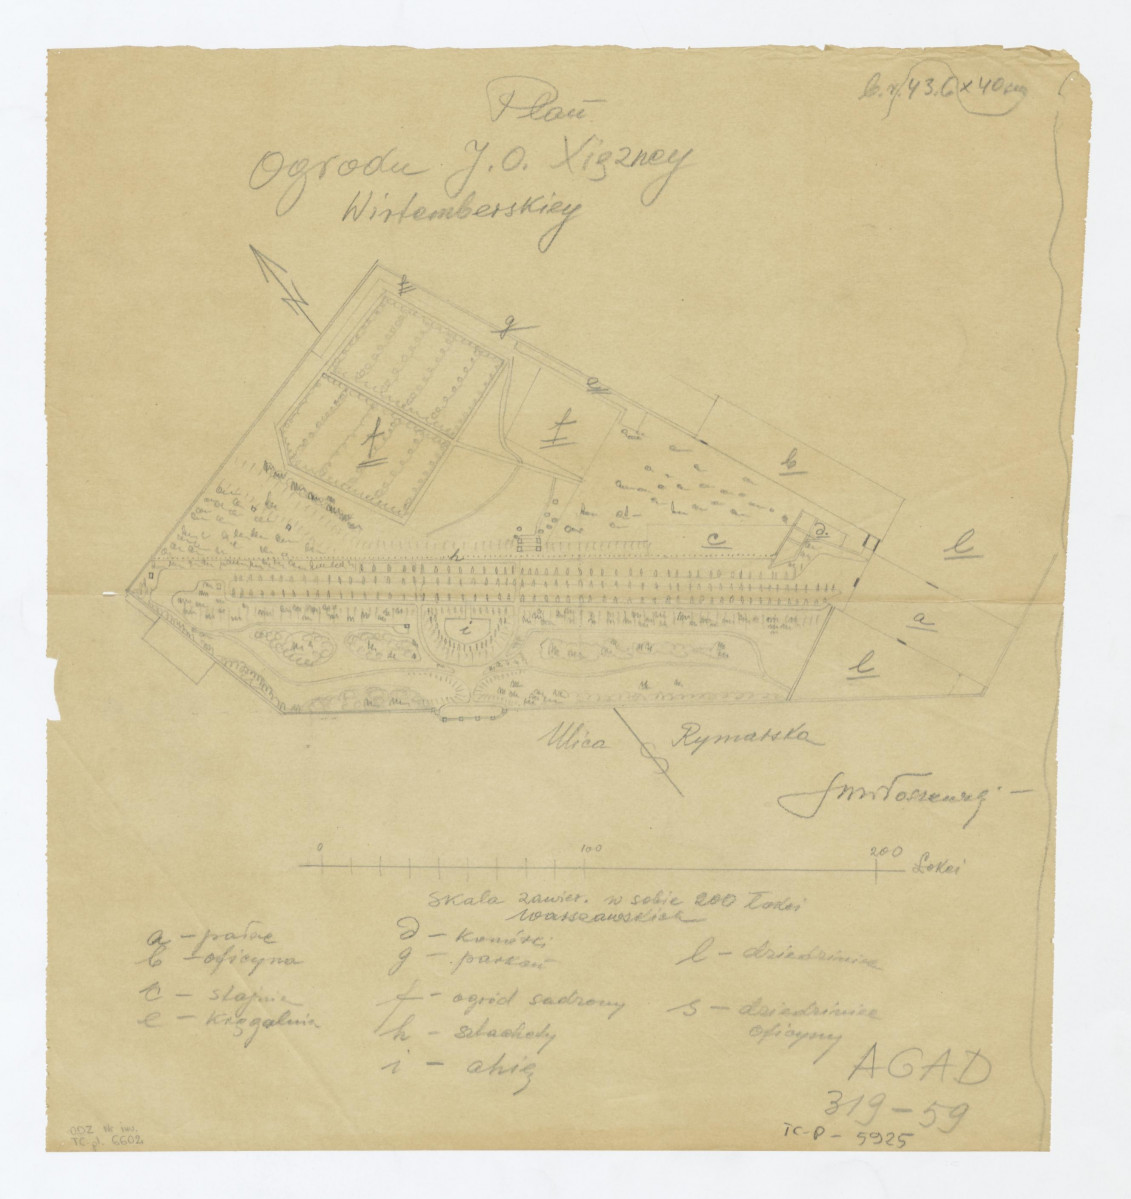 43.6 x 40 cm
Plan
Ogrodu J. O. Xiężney
Wirtemberskiey
k
g
e
f
f
b
c
d
l
h
a
i
l
Ulica Rymarska
0 100 200 Łokci
Skala zawier. w sobie 200 Łokci
warszawskich
a - pałac
b - oficyna
c - stajnie
e - kręgalnia
d - komórki
g - parkan
f - ogród sadzony
h - sztachety
i -
l - dziedziniec
s - dziedziniec
oficyny
AGAD
319-59
TC-P - 5925
ODZ Nr inw.
TC-p. 6602